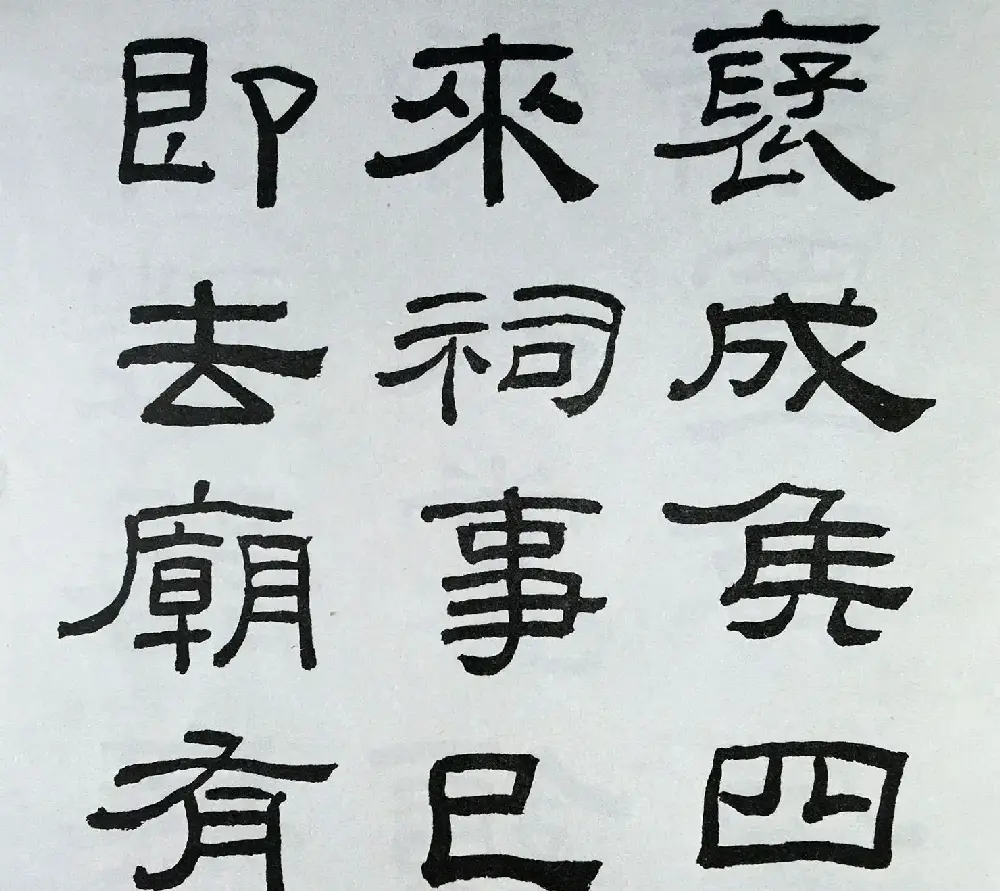 褒成侯四
來祠事已
即去廟有